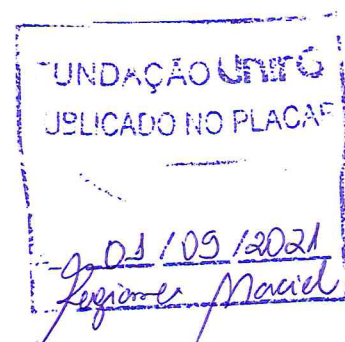 UNDAÇÃO UnirG
UBLICADO NO PLACAR
01/09/2021
Regiane Maciel